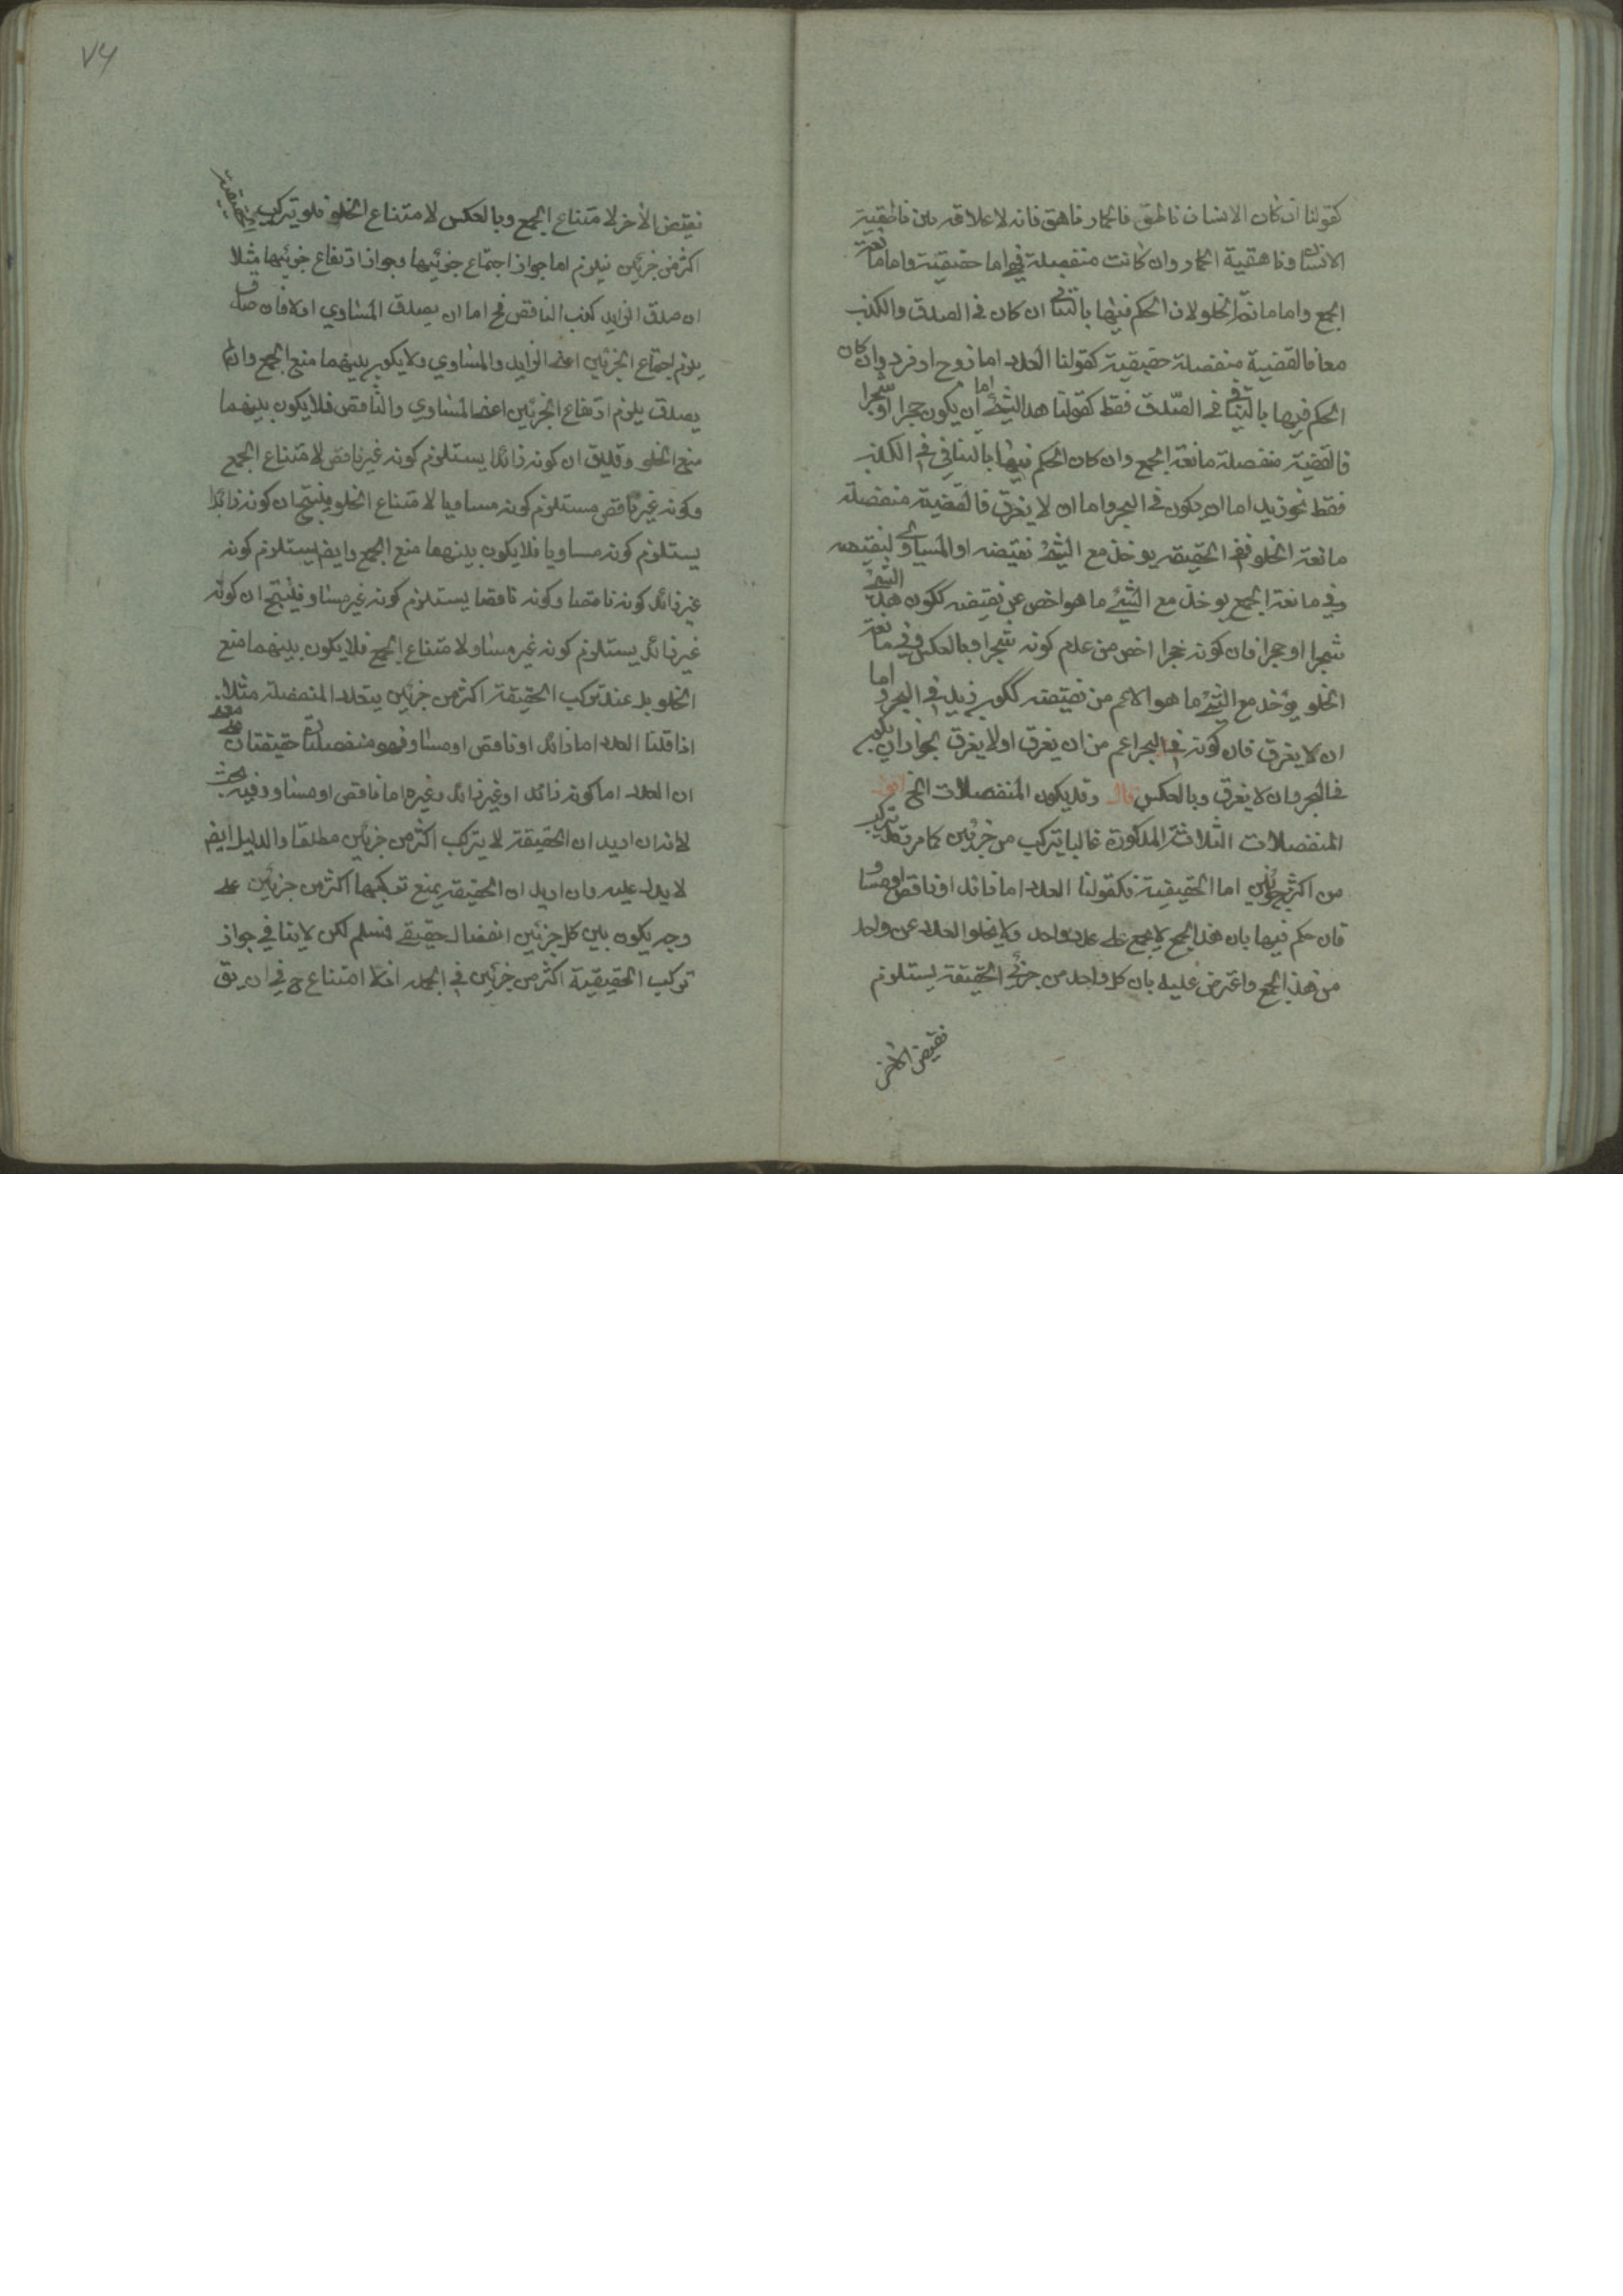 كقولنا ان كان الانسان ناطق فالحمار ناهق فانه لا علاقه بين ناطقية
الانسان وناهقية الحمار وان كانت منفصلة فهي اما حقيقية واما مانعة
الجمع واما مانعة الخلو لان الحكم فيها بالتنافي ان كان في الصدق والكذب
معا فالقضية منفصلة حقيقية كقولنا العدد اما زوج او فرد وان كان
الحكم فيها بالتنافي في الصّدق فقط كقولنا هذا الشيء اما ان يكون حجرا او شجرا
فالقضية منفصلة مانعة الجمع وان كان الحكم فيها بالتنافي في الكذب
فقط نحو زيد اما ان يكون في البحر واما ان لا يغرق فالقضية منفصلة
مانعة الخلو ففي الحقيقه يوخذ مع الشيء نقيضه او المساوي لنقيضه
وفي مانعة الجمع يوخذ مع الشيء ما هو اخص عن نقيضه ككون هذا الشيء
شجرا او حجرا فان كونه حجرا اخص من عدم كونه شجرا وبالعكس وفي مانعة
الخلو يؤخذ مع الشيء ما هو الاعم من نقيضه ككون زيد في البحر و اما
ان لا يغرق فان كونه في البحر اعم من ان يغرق او لا يغرق لجواز ان يكون
في البحر وان لا يغرق وبالعكس قال وقد يكون المنفصلات الخ اقول
المنفصلات الثلاثة المذكورة غالبا يتركب من جزئين كما مر وقد يتركب
من اكثر من جزئين اما الحقيقية فكقولنا العدد اما زائد او ناقص او مساو
فان حكم فيها بان هذا الجمع لا يجمع على عدد واحد ولا يخلو العدد عن واحد
من هذا الجمع واعترض عليه بان كل واحد من جزئي الحقيقة يستلزم
نقيض الاخر
٧٦
نقيض الأخر لا متناع الجمع وبالعكس لا متناع الخلو فلو تركب الحقيقية
اكثر من جزئين فيلزم اما جواز اجتماع جزئيها وجواز ارتفاع جزئيها مثلا
ان صدق الزايد كذب الناقص فح اما ان يصدق المساوي اولا فان صدق
يلزم اجتماع الجزئين اعني الزايد والمساوي ولا يكون بينهما منع الجمع وان لم
يصدق يلزم ارتفاع الجزئين اعني المساوي والناقص فلا يكون بينهما
منع الخلو وقد يق ان كونه زائدا يستلزم كونه غير ناقص لا متناع الجمع
وكونه غير ناقص مستلزم كونه مساويا لا متناع الخلو فينتج ان كونه زائدا
يستلزم كونه مساويا فلا يكون بينهما منع الجمع وايض يستلزم كونه
غير زائد كونه ناقصا وكونه ناقصا يستلزم كونه غير مساو فينتج ان كونه
غير زائد يستلزم كونه غير مساو لا متناع الجمع فلا يكون بينهما منع
الخلو بل عند تركب الحقيقة اكثر من جزئين يتعدد المنفصلة مثلا
اذا قلنا العدد اما زائد او ناقص او مساو فهو منفصلتان حقيقتان
ان العدد اما كونه زائد او غير زائد وغيره اما ناقص او مساو وفيه بحث
لانه ان اريد ان الحقيقة لا يتركب اكثر من جزئين مطلقا والدليل ايض
لا يدل عليه وان اريد ان الحقيقة يمنع تركبها اكثر من جزئين على
وجه يكون بين كل جزئين انفصال حقيقي فسلم لكن لا ينافي جواز
تركب الحقيقية اكثر من جزئين في الجمله اذ لا امتناع ح في ان يق